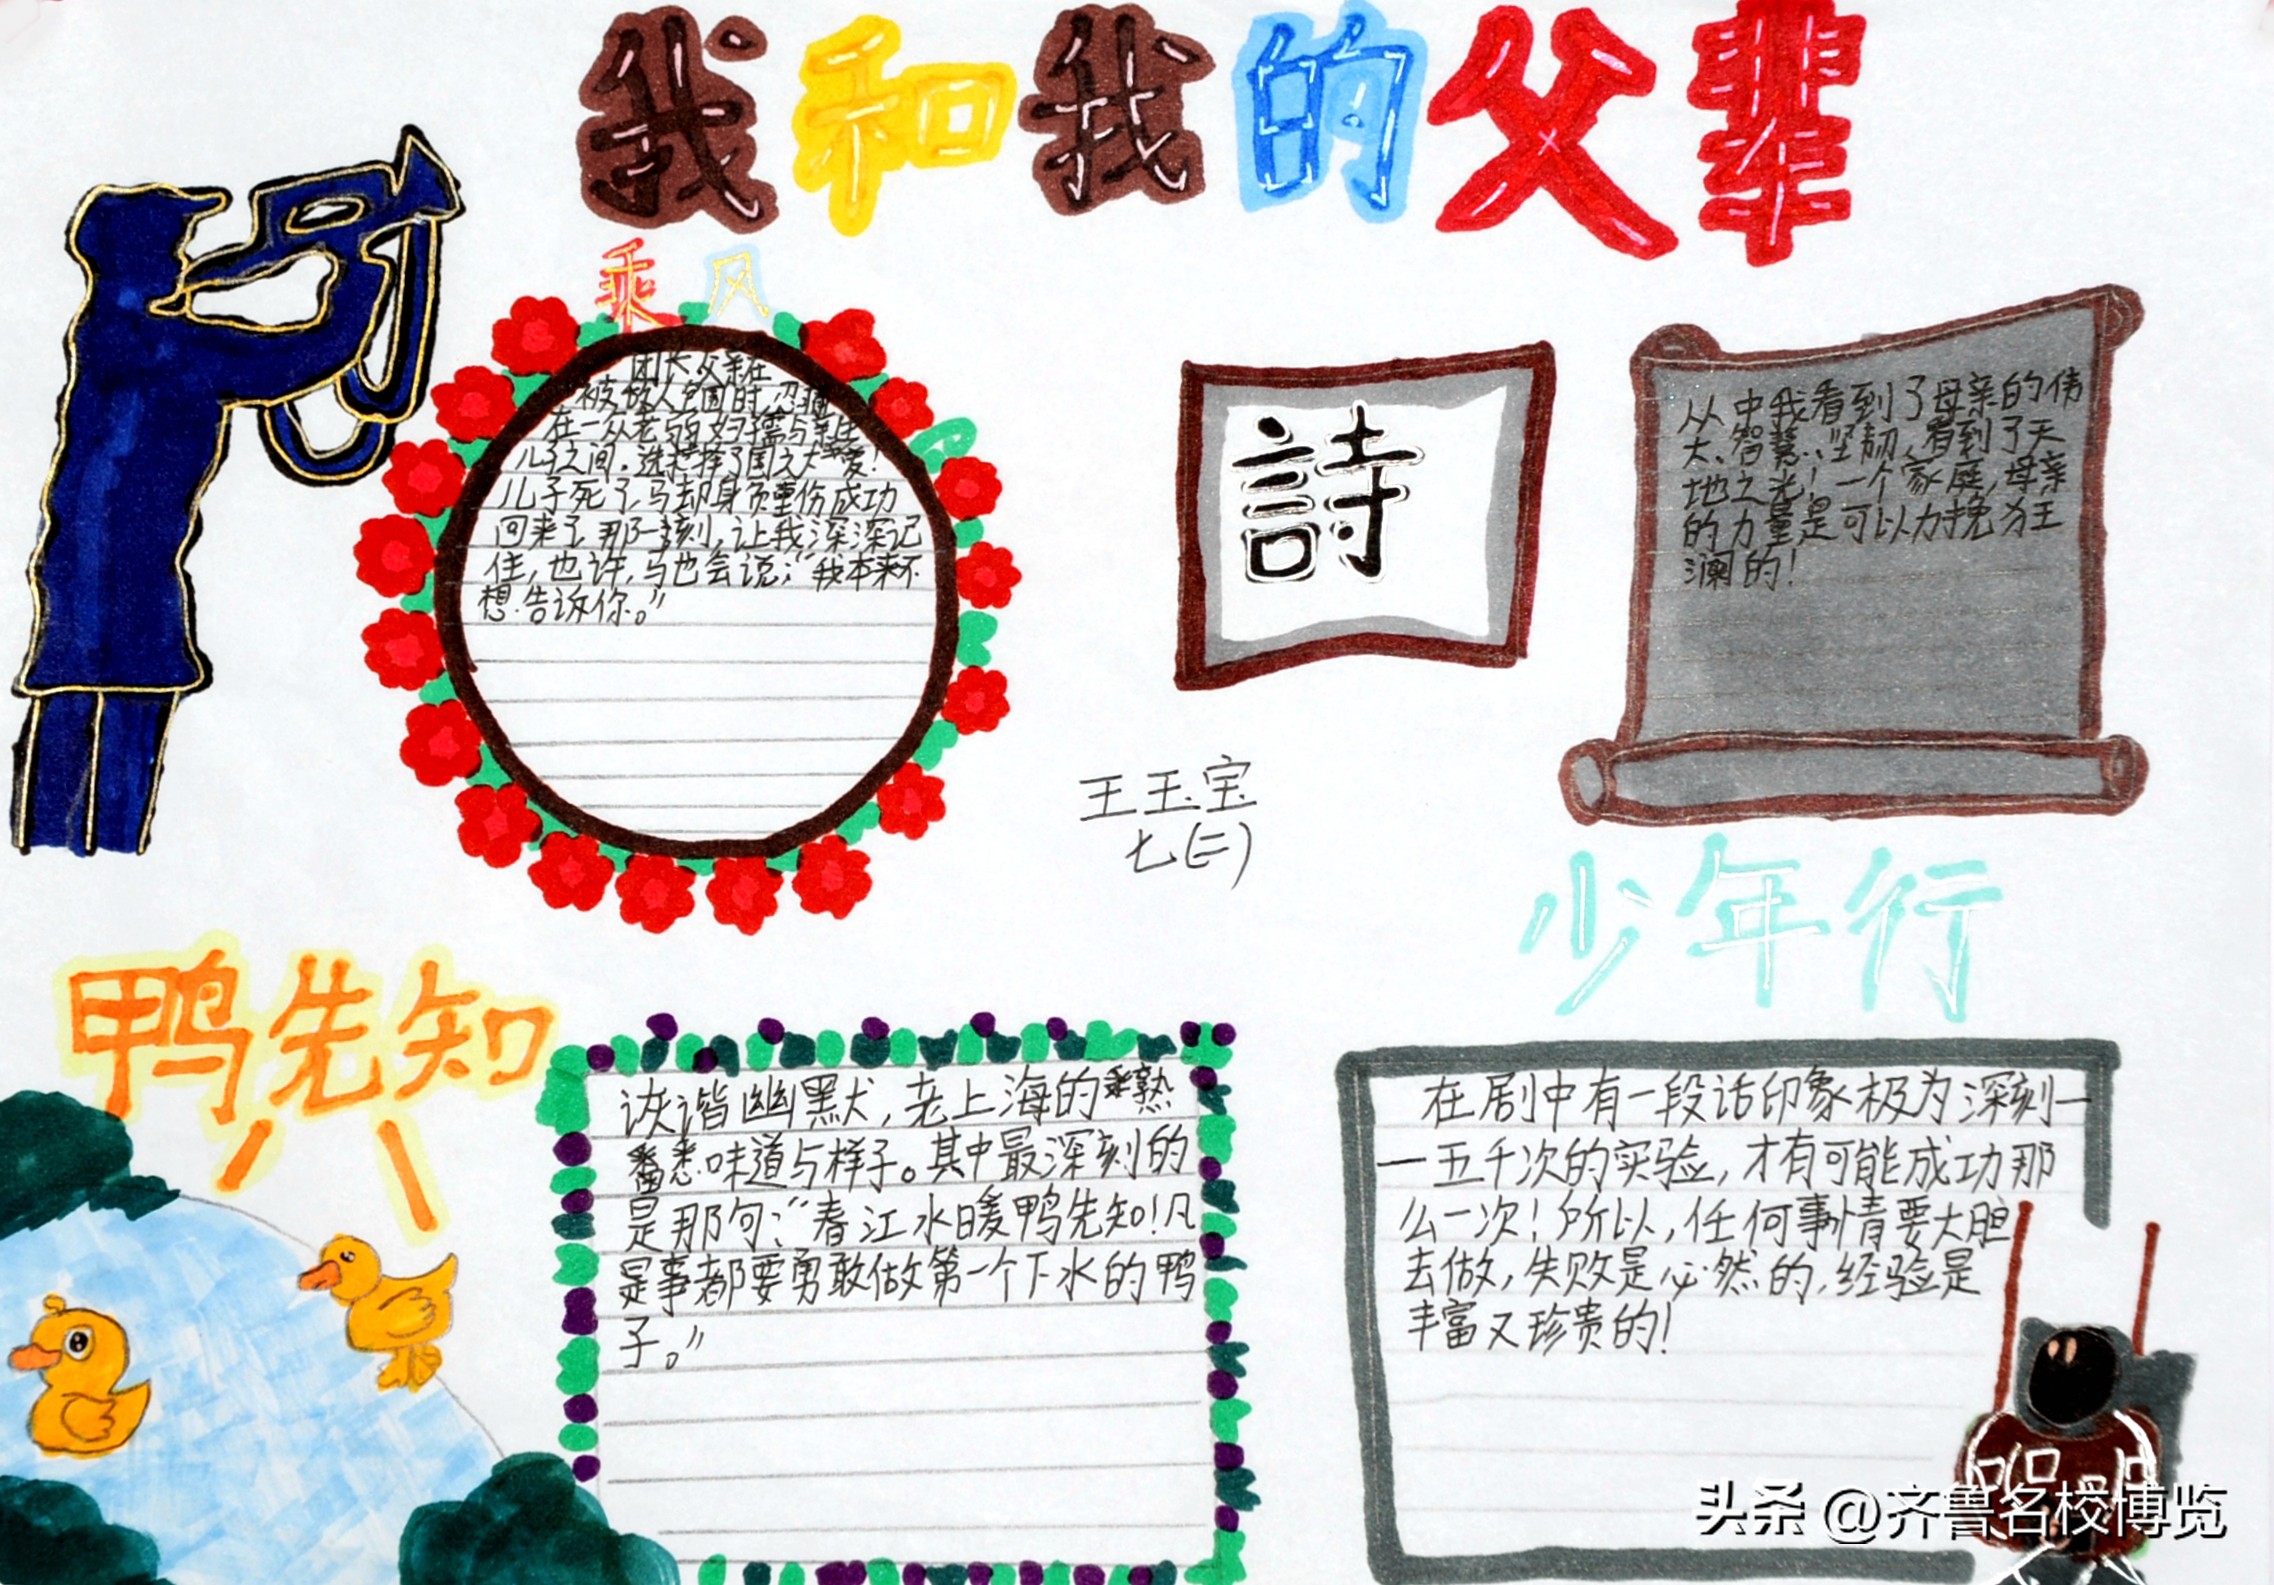 我和我的父辈
乘风
团长父亲在
被敌人包围时,忍痛
在一众老弱妇孺与亲生
儿子之间,选择了国之大爱!
儿子死了,马却身负重伤成功
回来了那一刻,让我深深记
住,也许,马也会说:“我本来不
想告诉你。”
詩
从中我看到了母亲的伟
大、智慧、坚韧,看到了天
地之光!一个家庭,母亲
的力量是可以力挽狂
澜的!
王玉宝
七(二)
鸭先知
诙谐幽默,老上海的熟
悉味道与样子。其中最深刻的
是那句:“春江水暖鸭先知!凡
是事都要勇敢做第一个下水的鸭
子。”
少年行
在剧中有一段话印象极为深刻—
—五千次的实验,才有可能成功那
么一次!所以,任何事情要大胆
去做,失败是必然的,经验是
丰富又珍贵的!
头条 @齐鲁名校博览